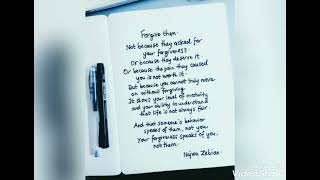 Forgive them.
Not because they asked for
your forgiveness
Or because they deserve it
Or because the pain they caused
you is not worth it
But because you cannot truly move
on without forgiving
It shows your level of maturity
and your ability to understand
that life is not always fair.
And that someone's behavior
speaks of them, not you.
Your forgiveness speaks of you,
not them.
Najwa Zebian
VideoShow